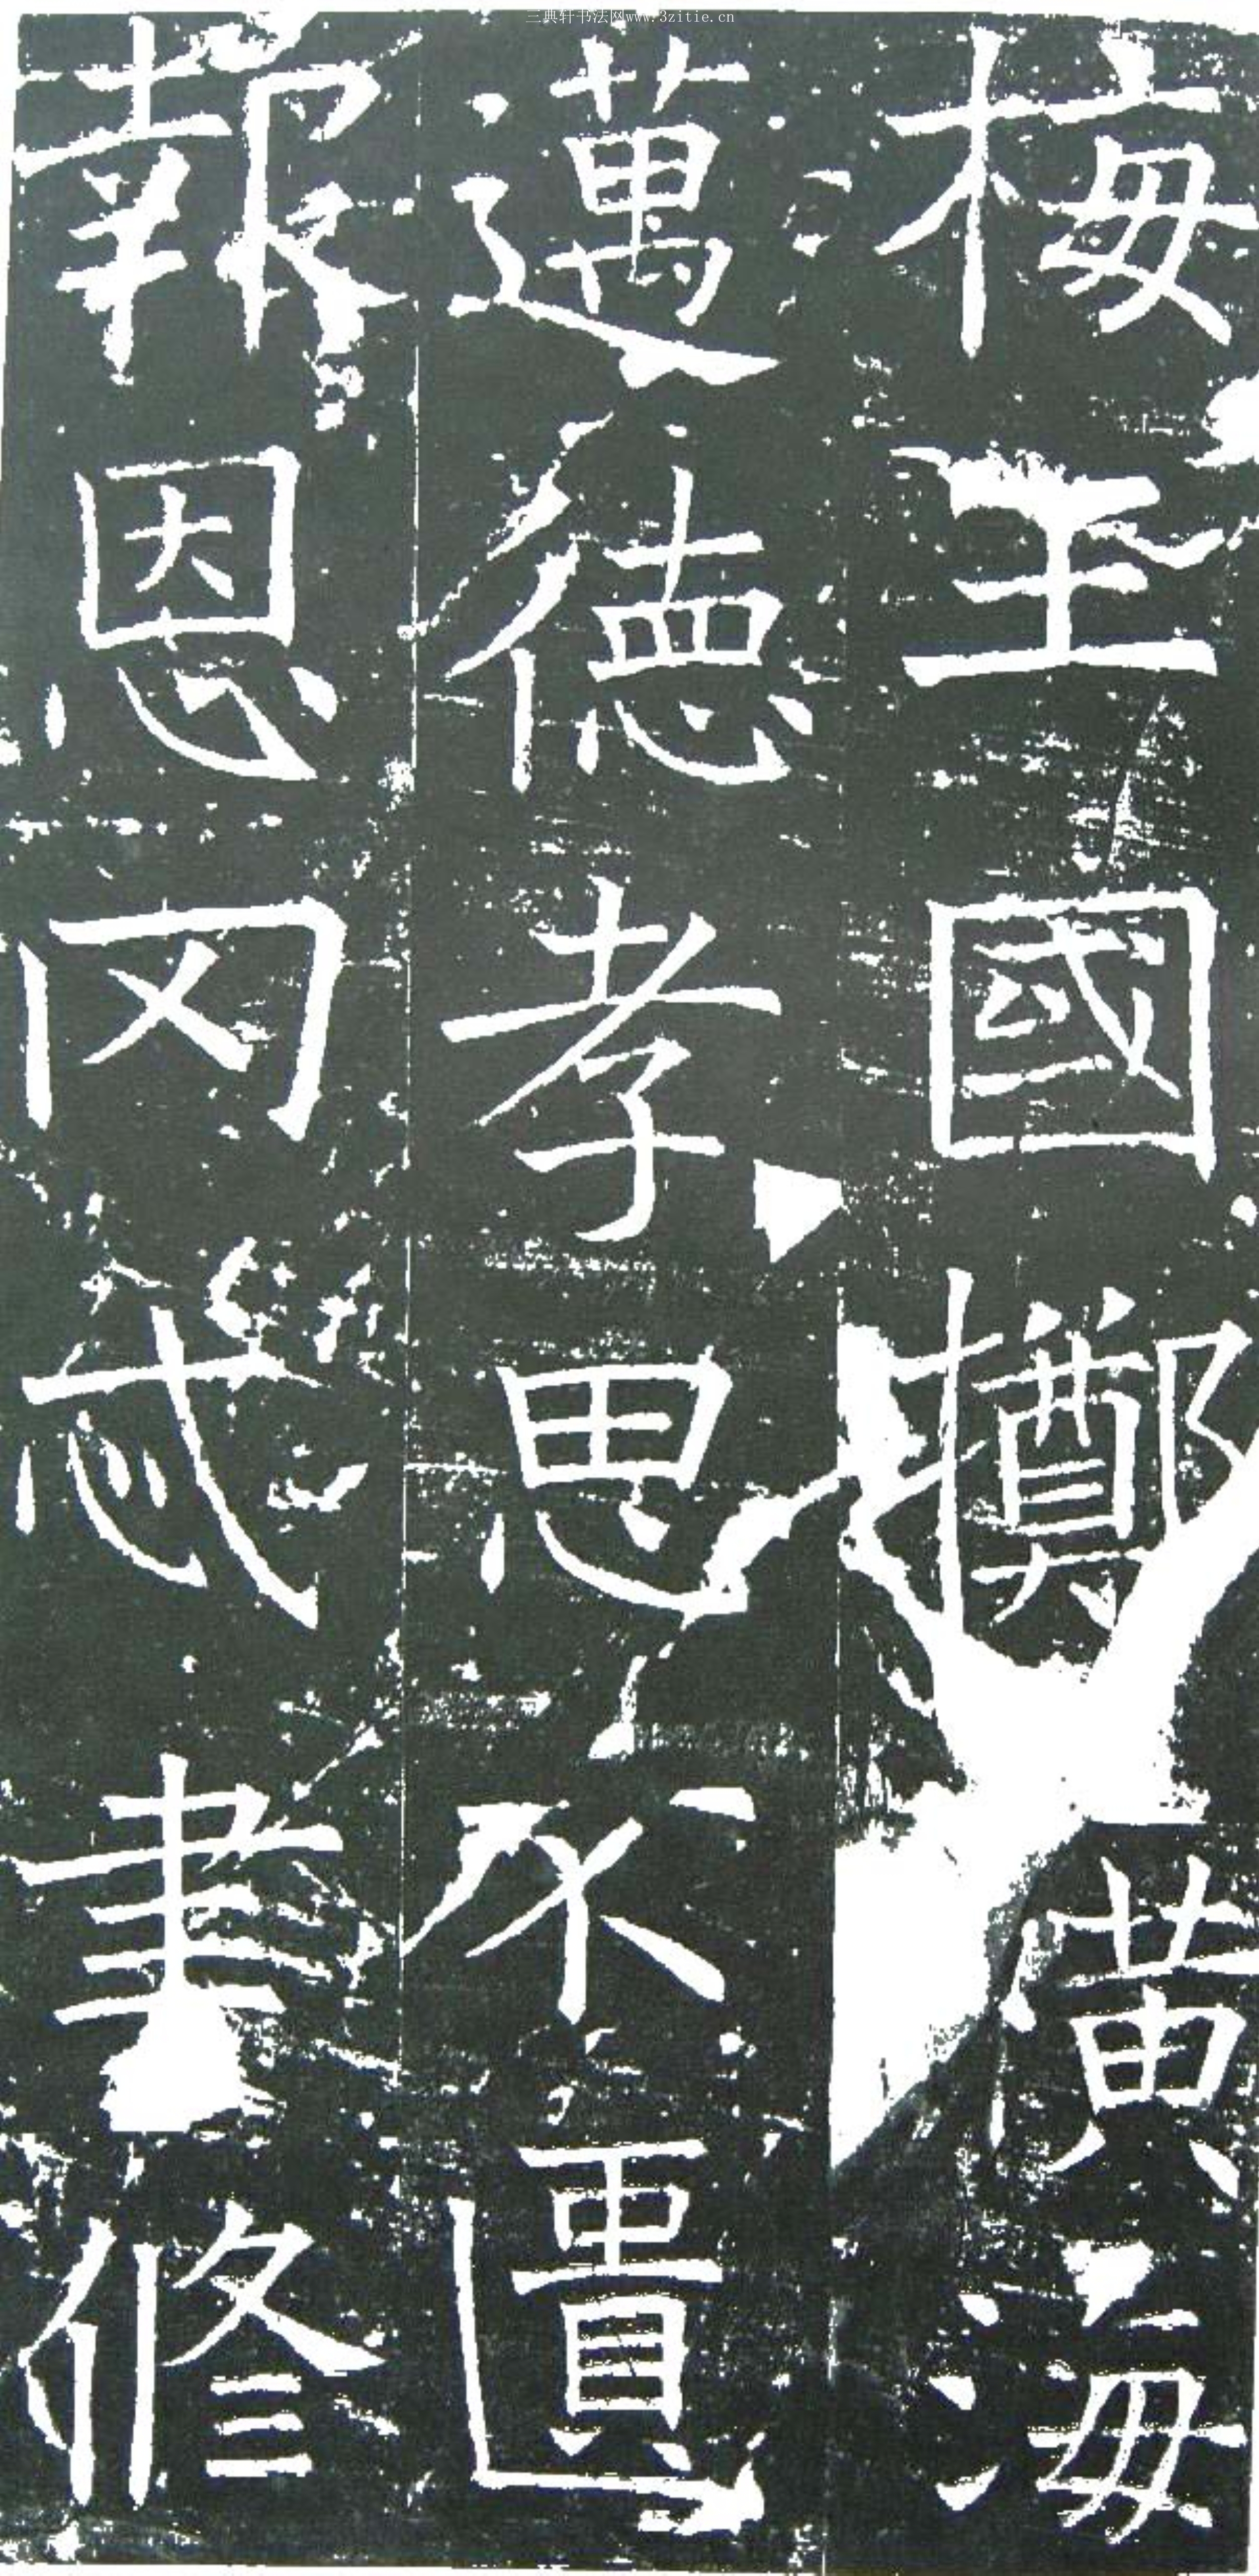 三典轩书法网www.3zitie.cn
梅王國擲黃海
邁德孝思不遺
報恩罔忒書修